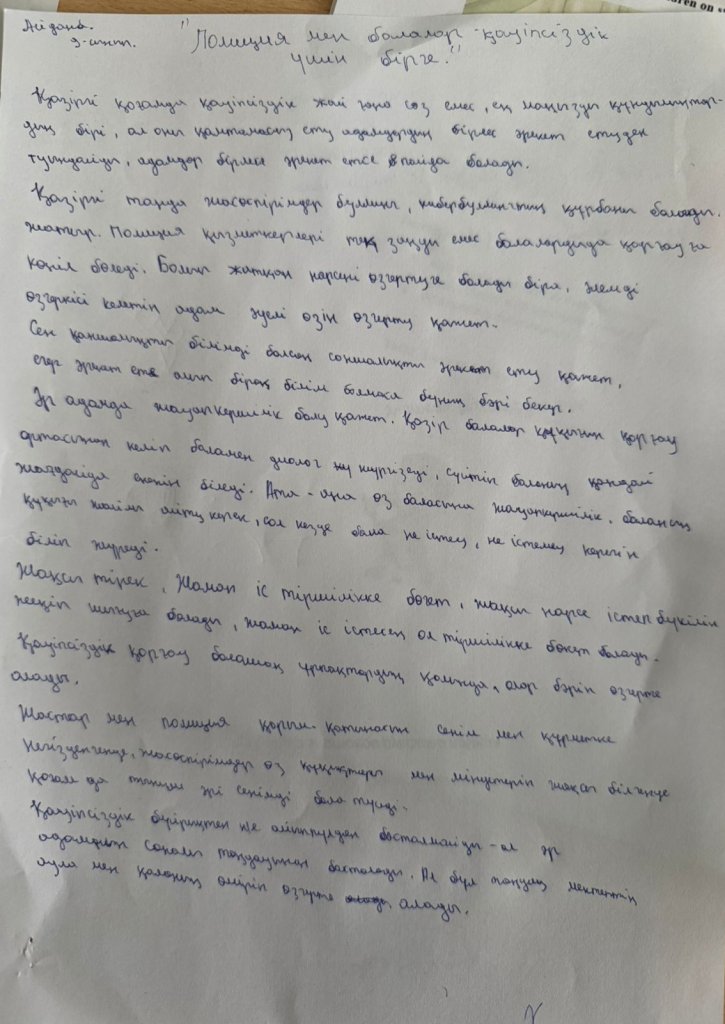 Айдана.
9-сынып.
"Полиция мен балалар - қауіпсіздік
үшін бірге."
Қазіргі қоғамда қауіпсіздік жай ғана сөз емес, ең маңызды құндылықтар-
дың бірі, ал оны қамтамасыз ету адамдардың бірлескен әрекет етуден
туындайды, адамдар бірлесе әрекет етсе пайда болады.
Қазіргі таңда жасөспірімдер буллинг, кибербуллингтің құрбаны болады.
жатыр. Полиция қызметкерлері тек заңды емес балаларды да қорғауға
көңіл бөледі. Болып жатқан нәрсені өзгертуге болады бірақ, әлемді
өзгерткісі келетін адам әуелі өзін өзгерту қажет.
Сен қаншалықты білімді болсаң соншалықты әрекет ету қажет,
егер әрекет ете алып бірақ білім болмаса бұның бәрі бекер.
Әр адамда жауапкершілік болу қажет. Қазір балалар құқығын қорғау
ортасынан келіп баламен диолог жүргізеді, сүйтіп баланың қандай
жағдайда екенін біледі. Ата-ана өз баласына жауапкершілік, баланың
құқығы жайлы айту керек, сол кезде бала не істеу, не істемеу керегін
біліп жүреді.
Жақсы тірек, Жаман іс тіршілікке бөгет, жақсы нәрсе істеп бүкілін
жеңіп шығуға болады, жаман іс істесең ол тіршілікке бөгет болады.
Қауіпсіздік қорғау болашақ ұрпақтардың қолында, олар бәрін өзгерте
алады.
Жастар мен полиция қарым-қатынасы сенім мен құрметке
негізделгенде, жасөспірімдер өз құқықтары мен міндетерін жақсы білгенде
қоғам да тыныш әрі сенімді бола түседі.
Қауіпсіздік бұйрықтан не айыппұлдан басталмайды - ол әр
адамның саналы таңдауынан басталады. Ал бұл таңдау мектептің
аула мен қаланың өмірін өзгерте алады.